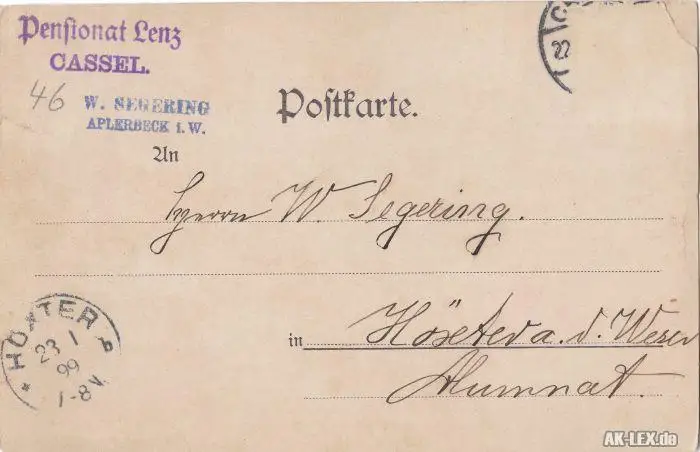 Pensionat Lenz
CASSEL.
46
W. SEGERING
APLERBECK i. W.
Postkarte.
C
22
An
Herrn W. Segering.
in Höxter a. d. Weser
Alumnat.
* HÖXTER *
23 1
99
1-8V
AK-LEX.de